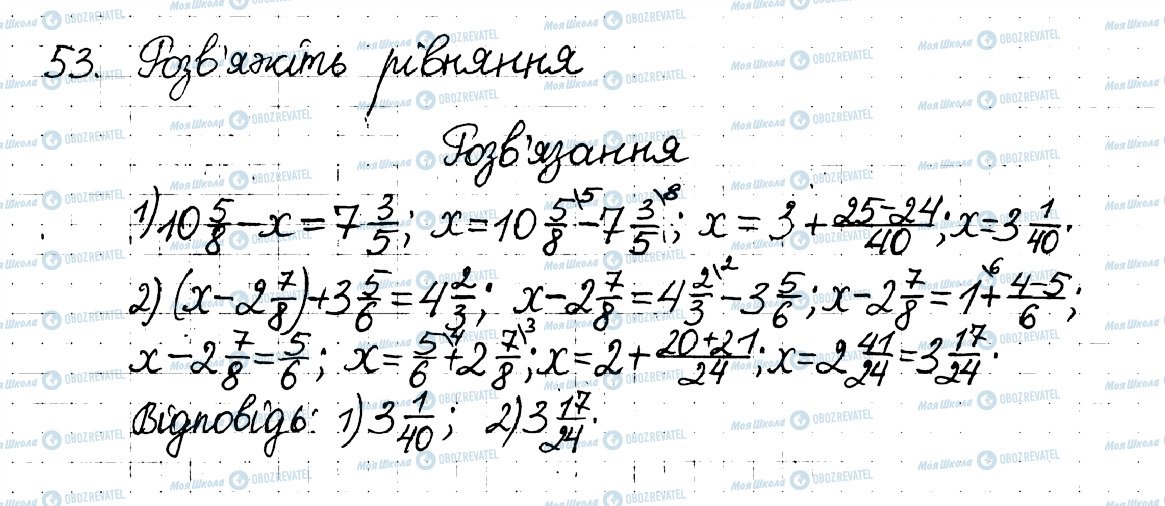 53. Розв'яжіть рівняння
Розв'язання
1) 10 5/8 − x = 7 3/5; x = 10 5/8 \5 − 7 3/5 \8; x = 3 + (25−24)/40; x = 3 1/40.
2) (x − 2 7/8) + 3 5/6 = 4 2/3; x − 2 7/8 = 4 2/3 \2 − 3 5/6; x − 2 7/8 = 1 \6 + (4−5)/6;
x − 2 7/8 = 5/6; x = 5/6 \4 + 2 7/8 \3; x = 2 + (20+21)/24; x = 2 41/24 = 3 17/24.
Відповідь: 1) 3 1/40; 2) 3 17/24.